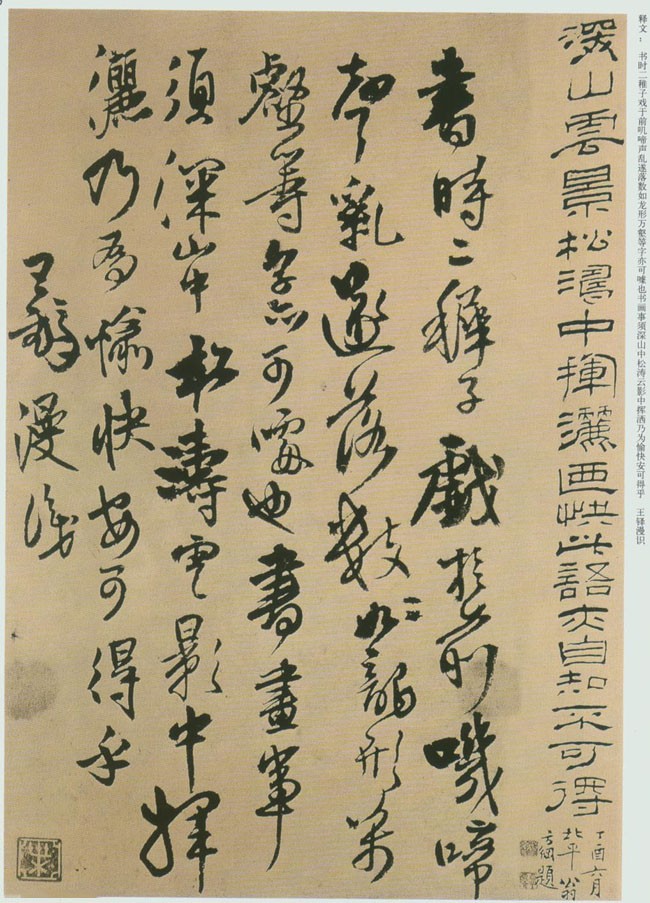 释文： 书时二稚子戏于前叽啼声乱遂落数如龙形万壑等字亦可噱也书画事须深山中松涛云影中挥洒乃为愉快安可得乎 王铎漫识
深山雲景松濤中揮灑画快此語亦自知不可得
丁酉六月
北平翁
方綱題
書時二稺子戲於前嘰啼
声亂遂落數如龍形萬
壑等字亦可噱也書畫事
須深山中松濤雲影中揮
灑乃為愉快安可得乎
王鐸漫識